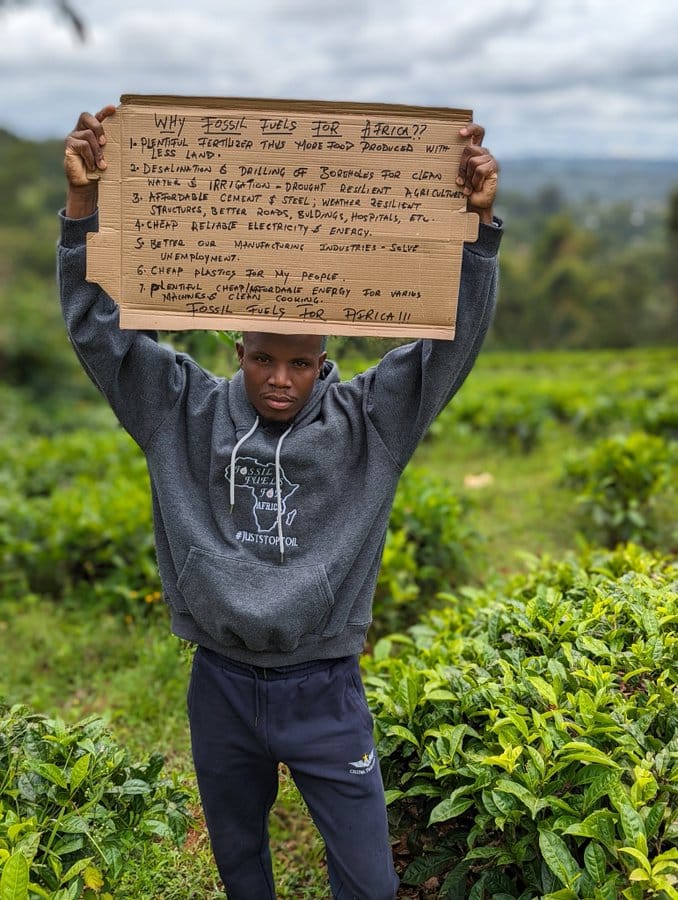 WHY FOSSIL FUELS FOR AFRICA??
1. PLENTIFUL FERTILIZER THUS MORE FOOD PRODUCED WITH
LESS LAND.
2. DESALINATION & DRILLING OF BOREHOLES FOR CLEAN
WATER & IRRIGATION - DROUGHT RESILIENT AGRICULTURE
3. AFFORDABLE CEMENT & STEEL; WEATHER RESILIENT
STRUCTURES, BETTER ROADS, BULDINGS, HOSPITALS, ETC.
4. CHEAP RELIABLE ELECTRICITY & ENERGY.
5. BETTER OUR MANUFACTURING INDUSTRIES - SOLVE
UNEMPLOYMENT.
6. CHEAP PLASTICS FOR MY PEOPLE.
7. PLENTIFUL CHEAP/AFFORDABLE ENERGY FOR VARIUS
MACHINES & CLEAN COOKING.
FOSSIL FUELS FOR AFRICA!!!
FOSSIL
FUELS
FOR
AFRICA
#JUSTSTOPTOIL